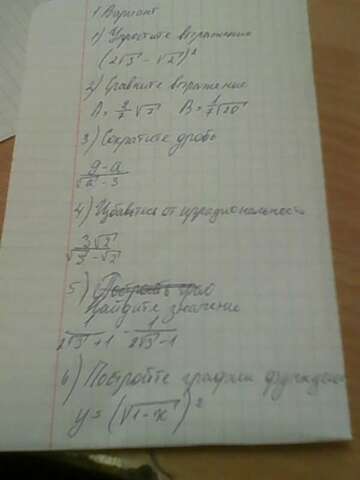 1 Вариант
1) Упростите выражение
(2√3 - √2)²
2) Сравните выражение
A = 3/2 √2 B = 1/7 √20
3) Сократите дробь
9-a / √a - 3
4) Избавится от иррациональность
3√2 / √3 - √2
5)
найдите значение
1 / 2√3 + 1 - 1 / 2√3 - 1
6) Постройте график функции
y = (√1-x)²